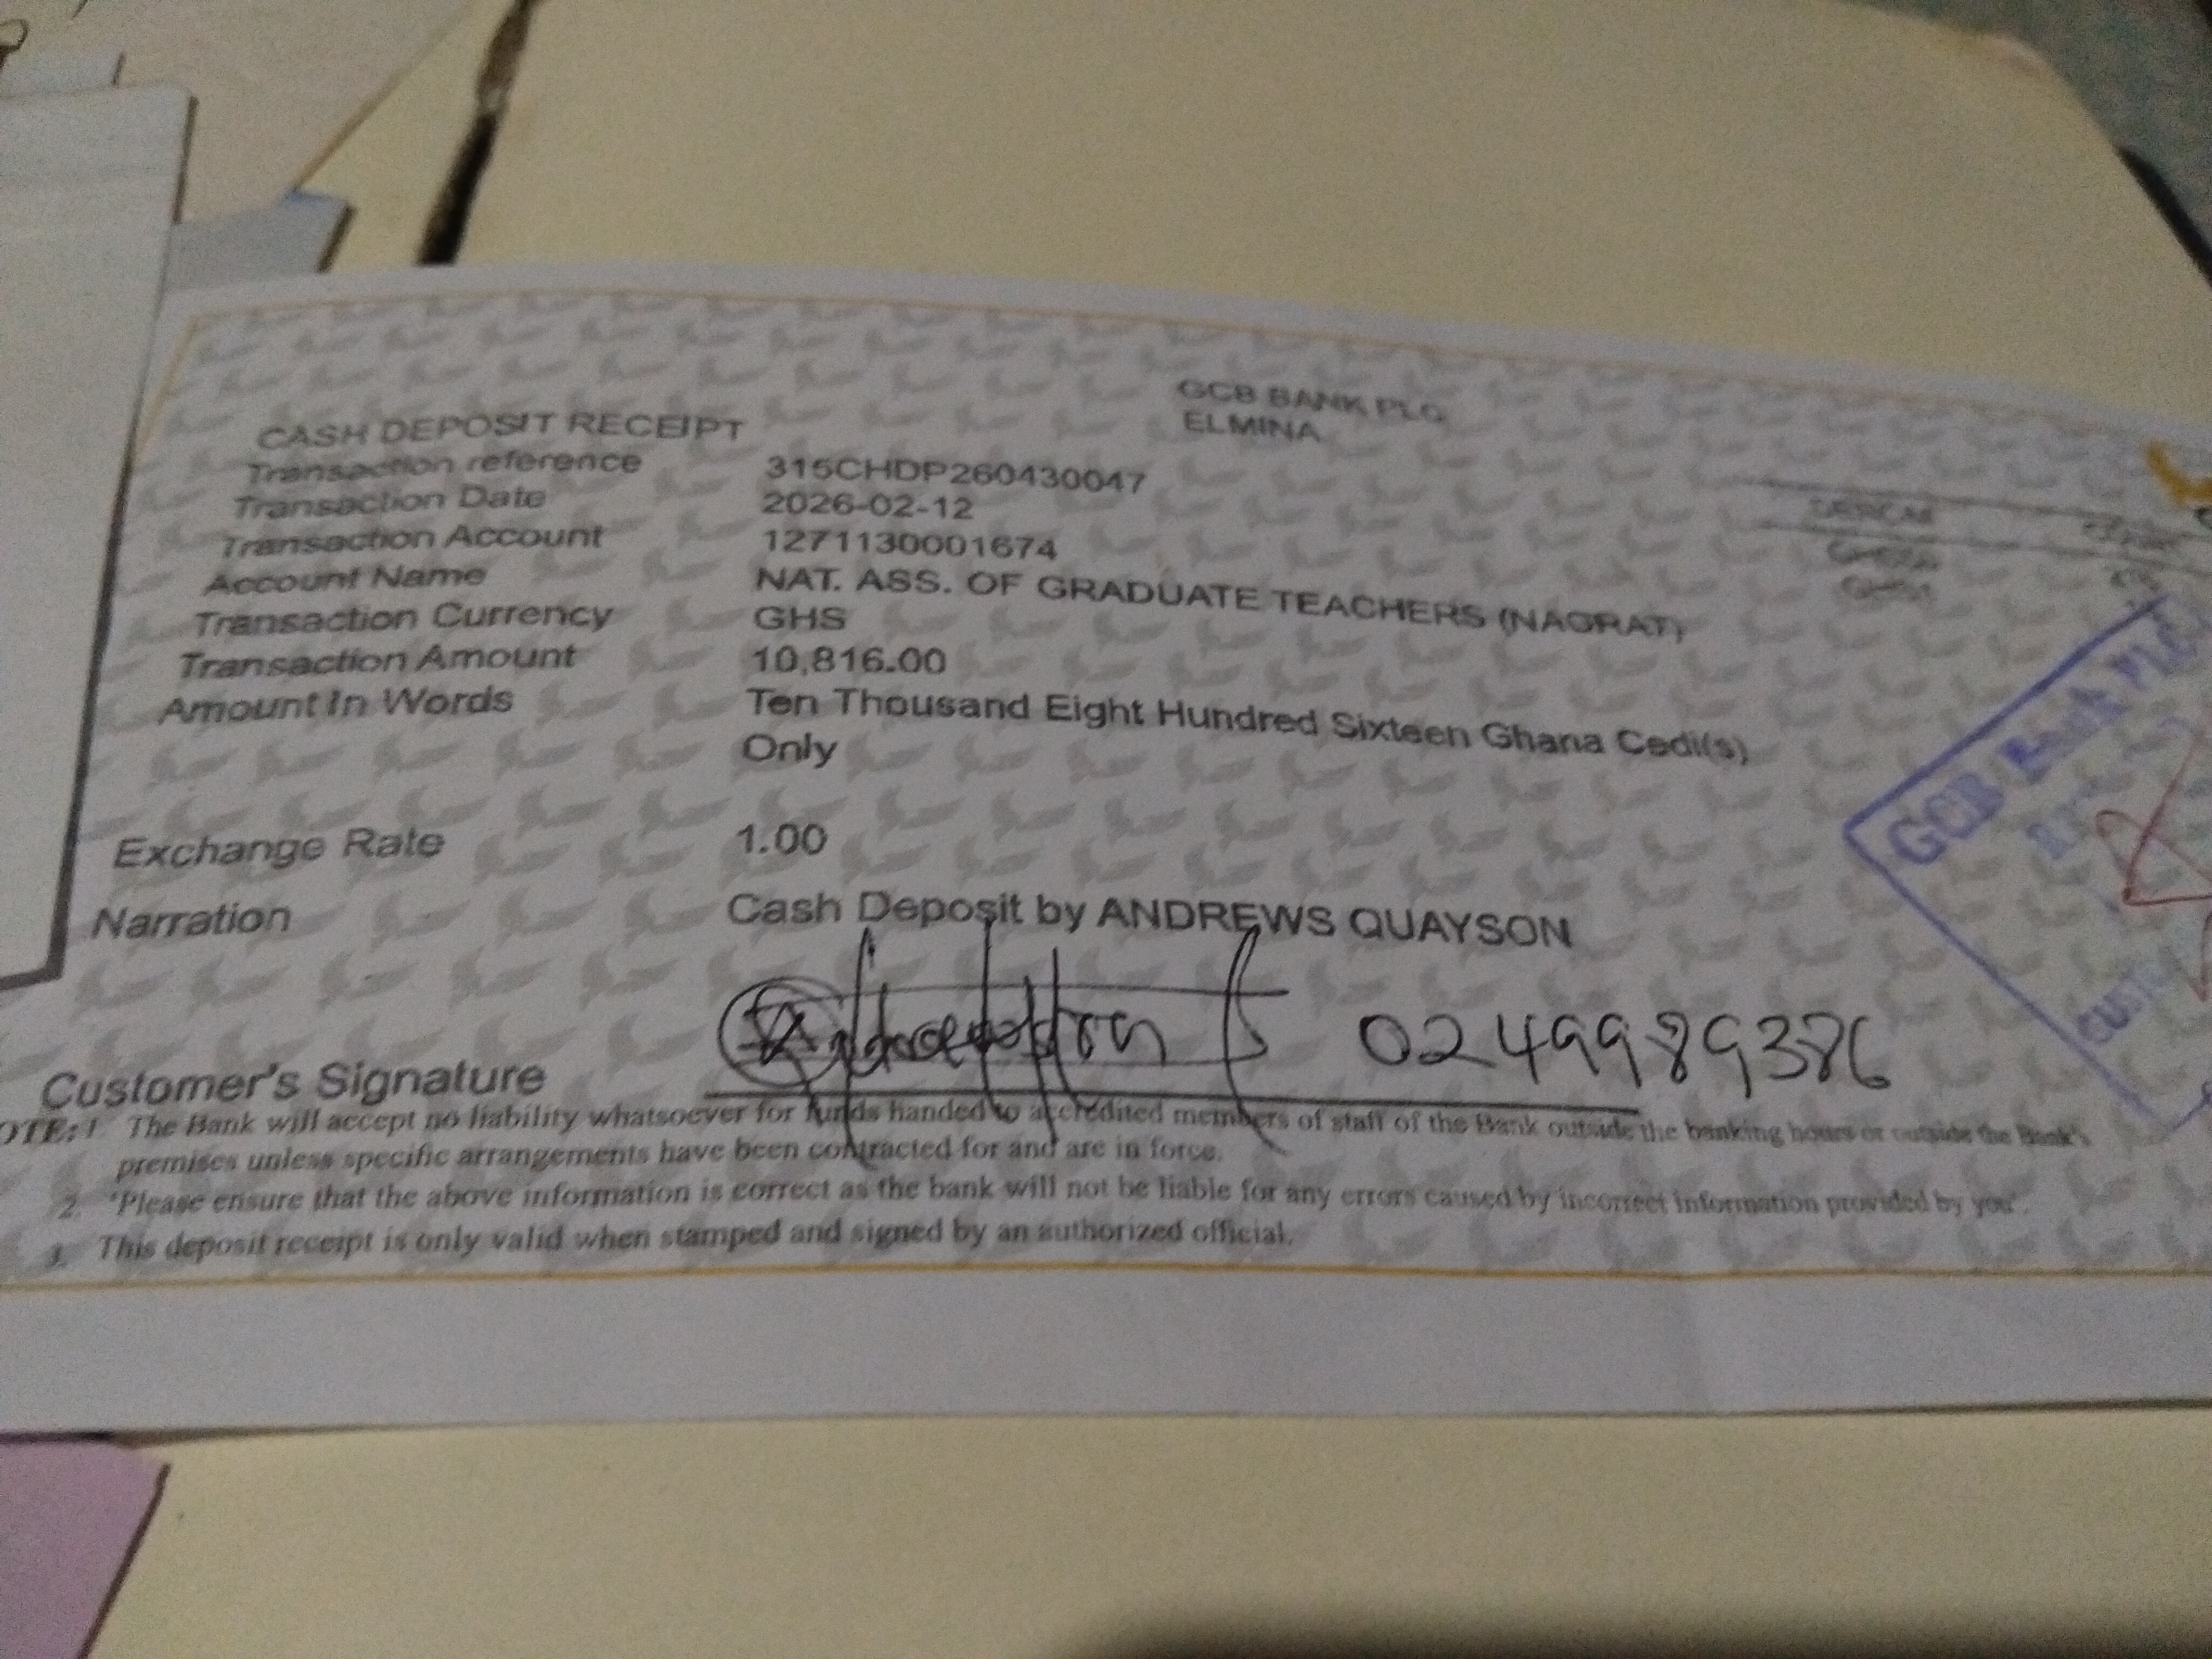 GCB BANK PLC
ELMINA
CASH DEPOSIT RECEIPT
Transaction reference 315CHDP260430047
Transaction Date 2026-02-12
Transaction Account 1271130001674
Account Name NAT. ASS. OF GRADUATE TEACHERS (NAGRAT)
Transaction Currency GHS
Transaction Amount 10,816.00
Amount In Words Ten Thousand Eight Hundred Sixteen Ghana Cedi(s)
Only
Exchange Rate 1.00
Narration Cash Deposit by ANDREWS QUAYSON
Customer's Signature 0249989386
OTE: 1 The Bank will accept no liability whatsoever for funds handed to accredited members of staff of the Bank outside the banking hours or outside the Bank's
premises unless specific arrangements have been contracted for and are in force.
2. 'Please ensure that the above information is correct as the bank will not be liable for any errors caused by incorrect information provided by you'.
3. This deposit receipt is only valid when stamped and signed by an authorized official.
GCB Bank PLC